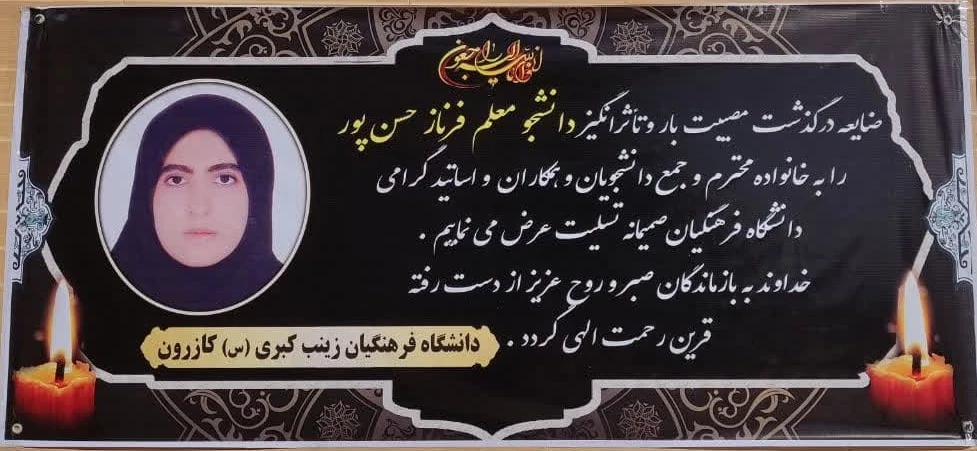 انا لله و انا الیه راجعون
ضایعه درگذشت مصیبت بار و تأثرانگیز دانشجو معلم فرناز حسن پور
را به خانواده محترم و جمع دانشجویان و همکاران و اساتید گرامی
دانشگاه فرهنگیان صمیمانه تسلیت عرض می نماییم .
خداوند به بازماندگان صبر و روح عزیز از دست رفته
قرین رحمت الهی گردد .
دانشگاه فرهنگیان زینب کبری (س) کازرون